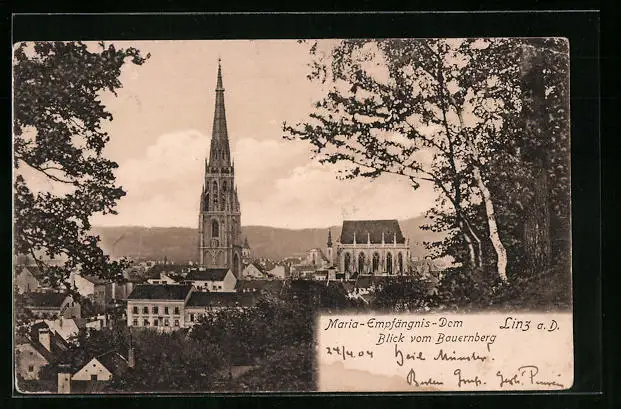 Maria-Empfängnis-Dom Linz a. D.
Blick vom Bauernberg
24/4 04 Heil Münster